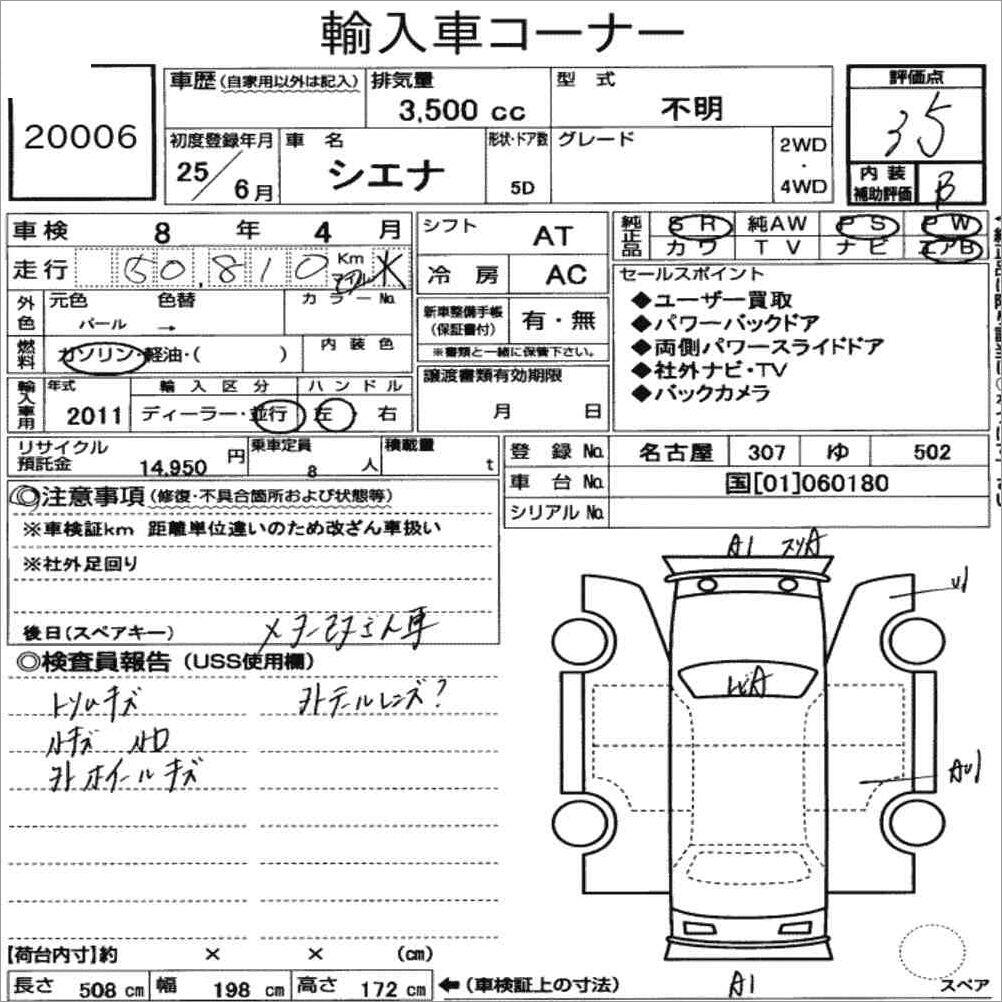 輸入車コーナー
20006
車歴(自家用以外は記入)
排気量
3,500 cc
型 式
不明
評価点
35
初度登録年月
25/6月
車 名
シエナ
形状・ドア数
5D
グレード
2WD
・
4WD
内 装
補助評価
B
車検 8 年 4 月
走行 50,810 Km マイル
シフト AT
冷 房 AC
純正品
SR 純AW PS PW
カワ TV ナビ エアB
外色
元色 色替 カラーNo.
パール →
燃料
ガソリン・軽油・( )
内装色
新車整備手帳
(保証書付)
有・無
※書類と一緒に保管下さい。
譲渡書類有効期限
月 日
セールスポイント
◆ユーザー買取
◆パワーバックドア
◆両側パワースライドドア
◆社外ナビ・TV
◆バックカメラ
輸入車用
年式 2011
輸入区分
ディーラー・並行
ハンドル
左・右
リサイクル
預託金 14,950 円
乗車定員
8 人
積載量
t
登 録 No. 名古屋 307 ゆ 502
車 台 No. 国[01]060180
シリアル No.
◎注意事項(修復・不具合箇所および状態等)
※車検証km 距離単位違いのため改ざん車扱い
※社外足回り
後日(スペアキー)
◎検査員報告(USS使用欄)
外ホイールキズ
外テールレンズ?
A1
A
U1
A
AU1
A1
【荷台内寸】約 × × (cm)
長さ 508 cm 幅 198 cm 高さ 172 cm ←(車検証上の寸法)
スペア